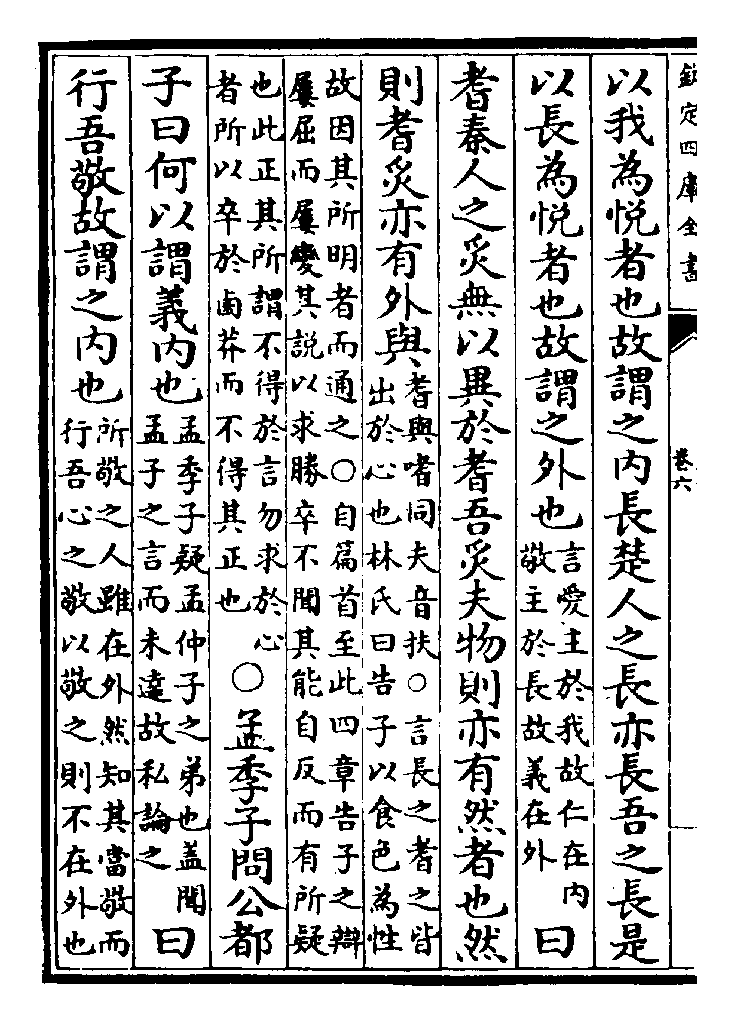 欽定四庫全書
卷六
以我為悅者也故謂之内長楚人之長亦長吾之長是
以長為悅者也故謂之外也言愛主於我故仁在内
敬主於長故義在外曰
耆秦人之炙無以異於耆吾炙夫物則亦有然者也然
則耆炙亦有外與耆與嗜同夫音扶○言長之耆之皆
出於心也林氏曰告子以食色為性
故因其所明者而通之○自篇首至此四章告子之辯
屢屈而屢變其説以求勝卒不聞其能自反而有所疑
也此正其所謂不得於言勿求於心
者所以卒於鹵莽而不得其正也○孟季子問公都
子曰何以謂義内也孟季子疑孟仲子之弟也盖聞
孟子之言而未達故私論之曰
行吾敬故謂之内也所敬之人雖在外然知其當敬而
行吾心之敬以敬之則不在外也